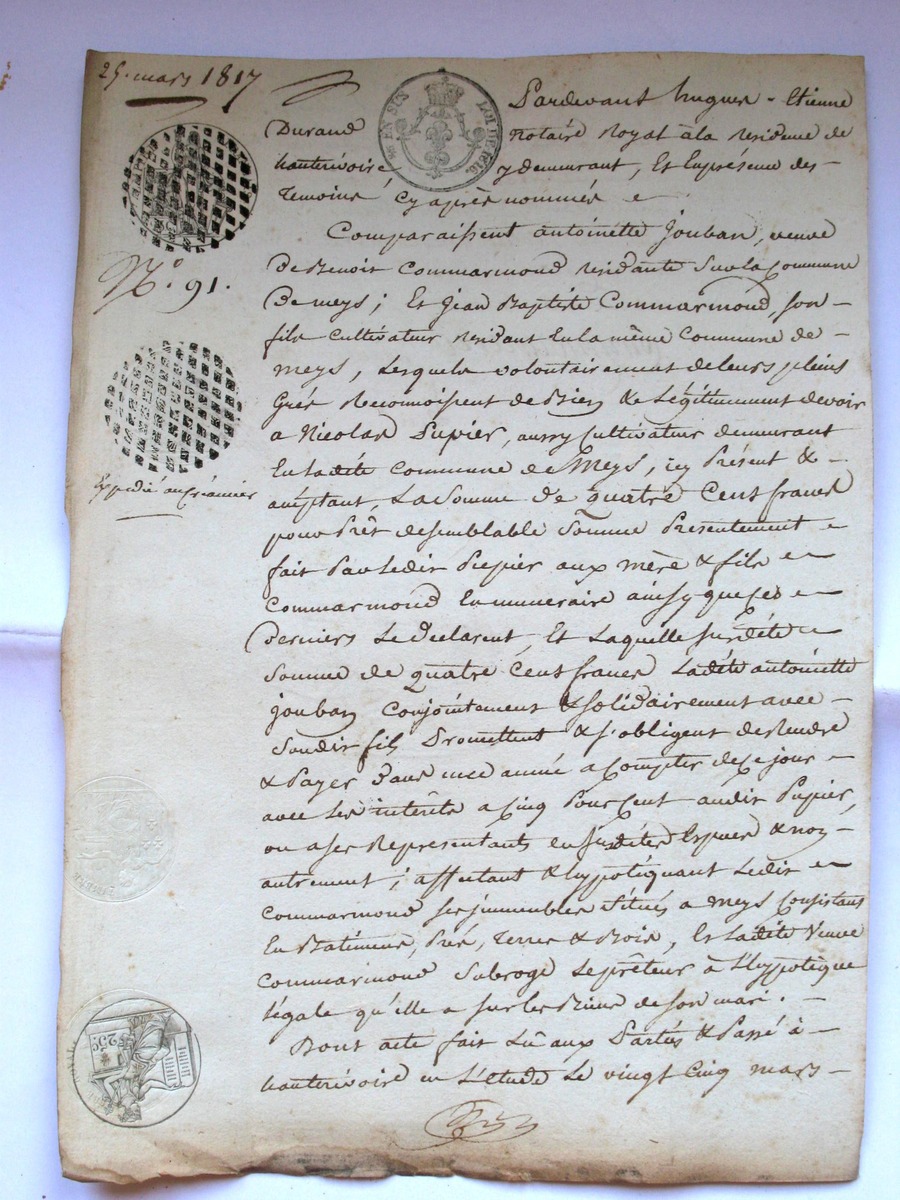 25. mars 1817
EN SUS
LOI DE 1816.
Pardevant hugues - Etienne
Durand notaire Royal à la residence de
hauterivoire y demeurant, Et En presence des -
Temoins cy après nommés
N.° 91.
Comparaissent antoinette Jouban, veuve
De Benoit Commarmond residante Sur la Commune
De meys ; Et Jean Baptiste Commarmond, son -
fils cultivateur residant En la même Commune de -
meys, Lesquels volontairement de leurs pleins
Grés Reconnoissent de Bien & Légitimement devoir
a Nicolas Pupier, aussy Cultivateur demeurant
En ladite Commune de Meys, icy Présent & -
Expedié au Créancier
acceptant, La Somme De quatre Cent francs
pour Prêt de semblable Somme Presentement
fait Par Ledit Pupier aux mère & fils
Commarmond En numeraire ainsy que ces
Derniers Le declarent, Et Laquelle susdite
Somme de quatre Cent francs Ladite antoinette
jouban Conjointement & solidairement avec -
Sondit fils Promettent & s'obligent de Rendre
& Payer Dans une année a Compter de ce jour -
avec Les interêts a Cinq Pour Cent audit Pupier,
ou a ses Représentants en susdites Especes & non -
autrement ; affectant & hypotéquant Ledit
Commarmond ses immeubles Situés a Meys Consistans
En Batiment, Prés, Terres & Bois, Et Ladite Veuve
Commarmond Subroge Le prêteur à L'hypotèque
légale qu'elle a sur les Biens de son mari. -
Dont acte fait Lû aux Parties & Passé à -
hauterivoire en L'étude Le vingt Cinq mars -